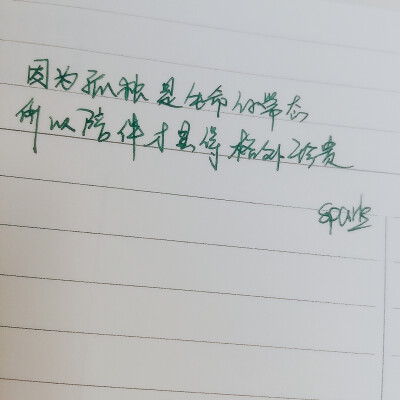 因为孤独是生命的常态
所以陪伴才显得格外珍贵
spark